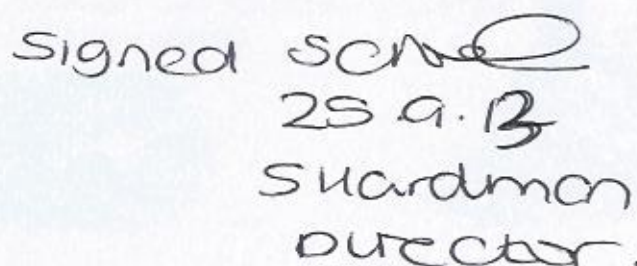 Signed
25.9.13
S Hardman
Director.